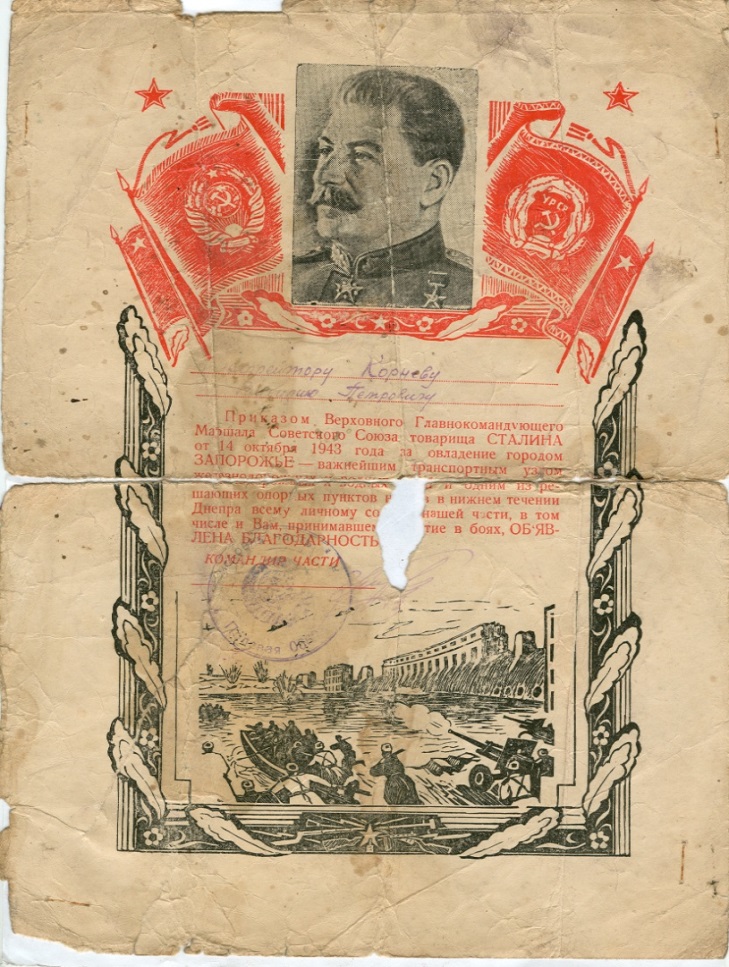 УРСР
Корневу
Петровичу
Приказом Верховного Главнокомандующего
Маршала Советского Союза товарища СТАЛИНА
от 14 октября 1943 года за овладение городом
ЗАПОРОЖЬЕ — важнейшим транспортным узлом
и одним из ре-
шающих опорных пунктов в нижнем течении
Днепра всему личному нашей части, в том
числе и Вам, в боях, ОБ'ЯВ-
ЛЕНА БЛАГОДАРНОСТЬ
КОМАНДИР ЧАСТИ
Полевая